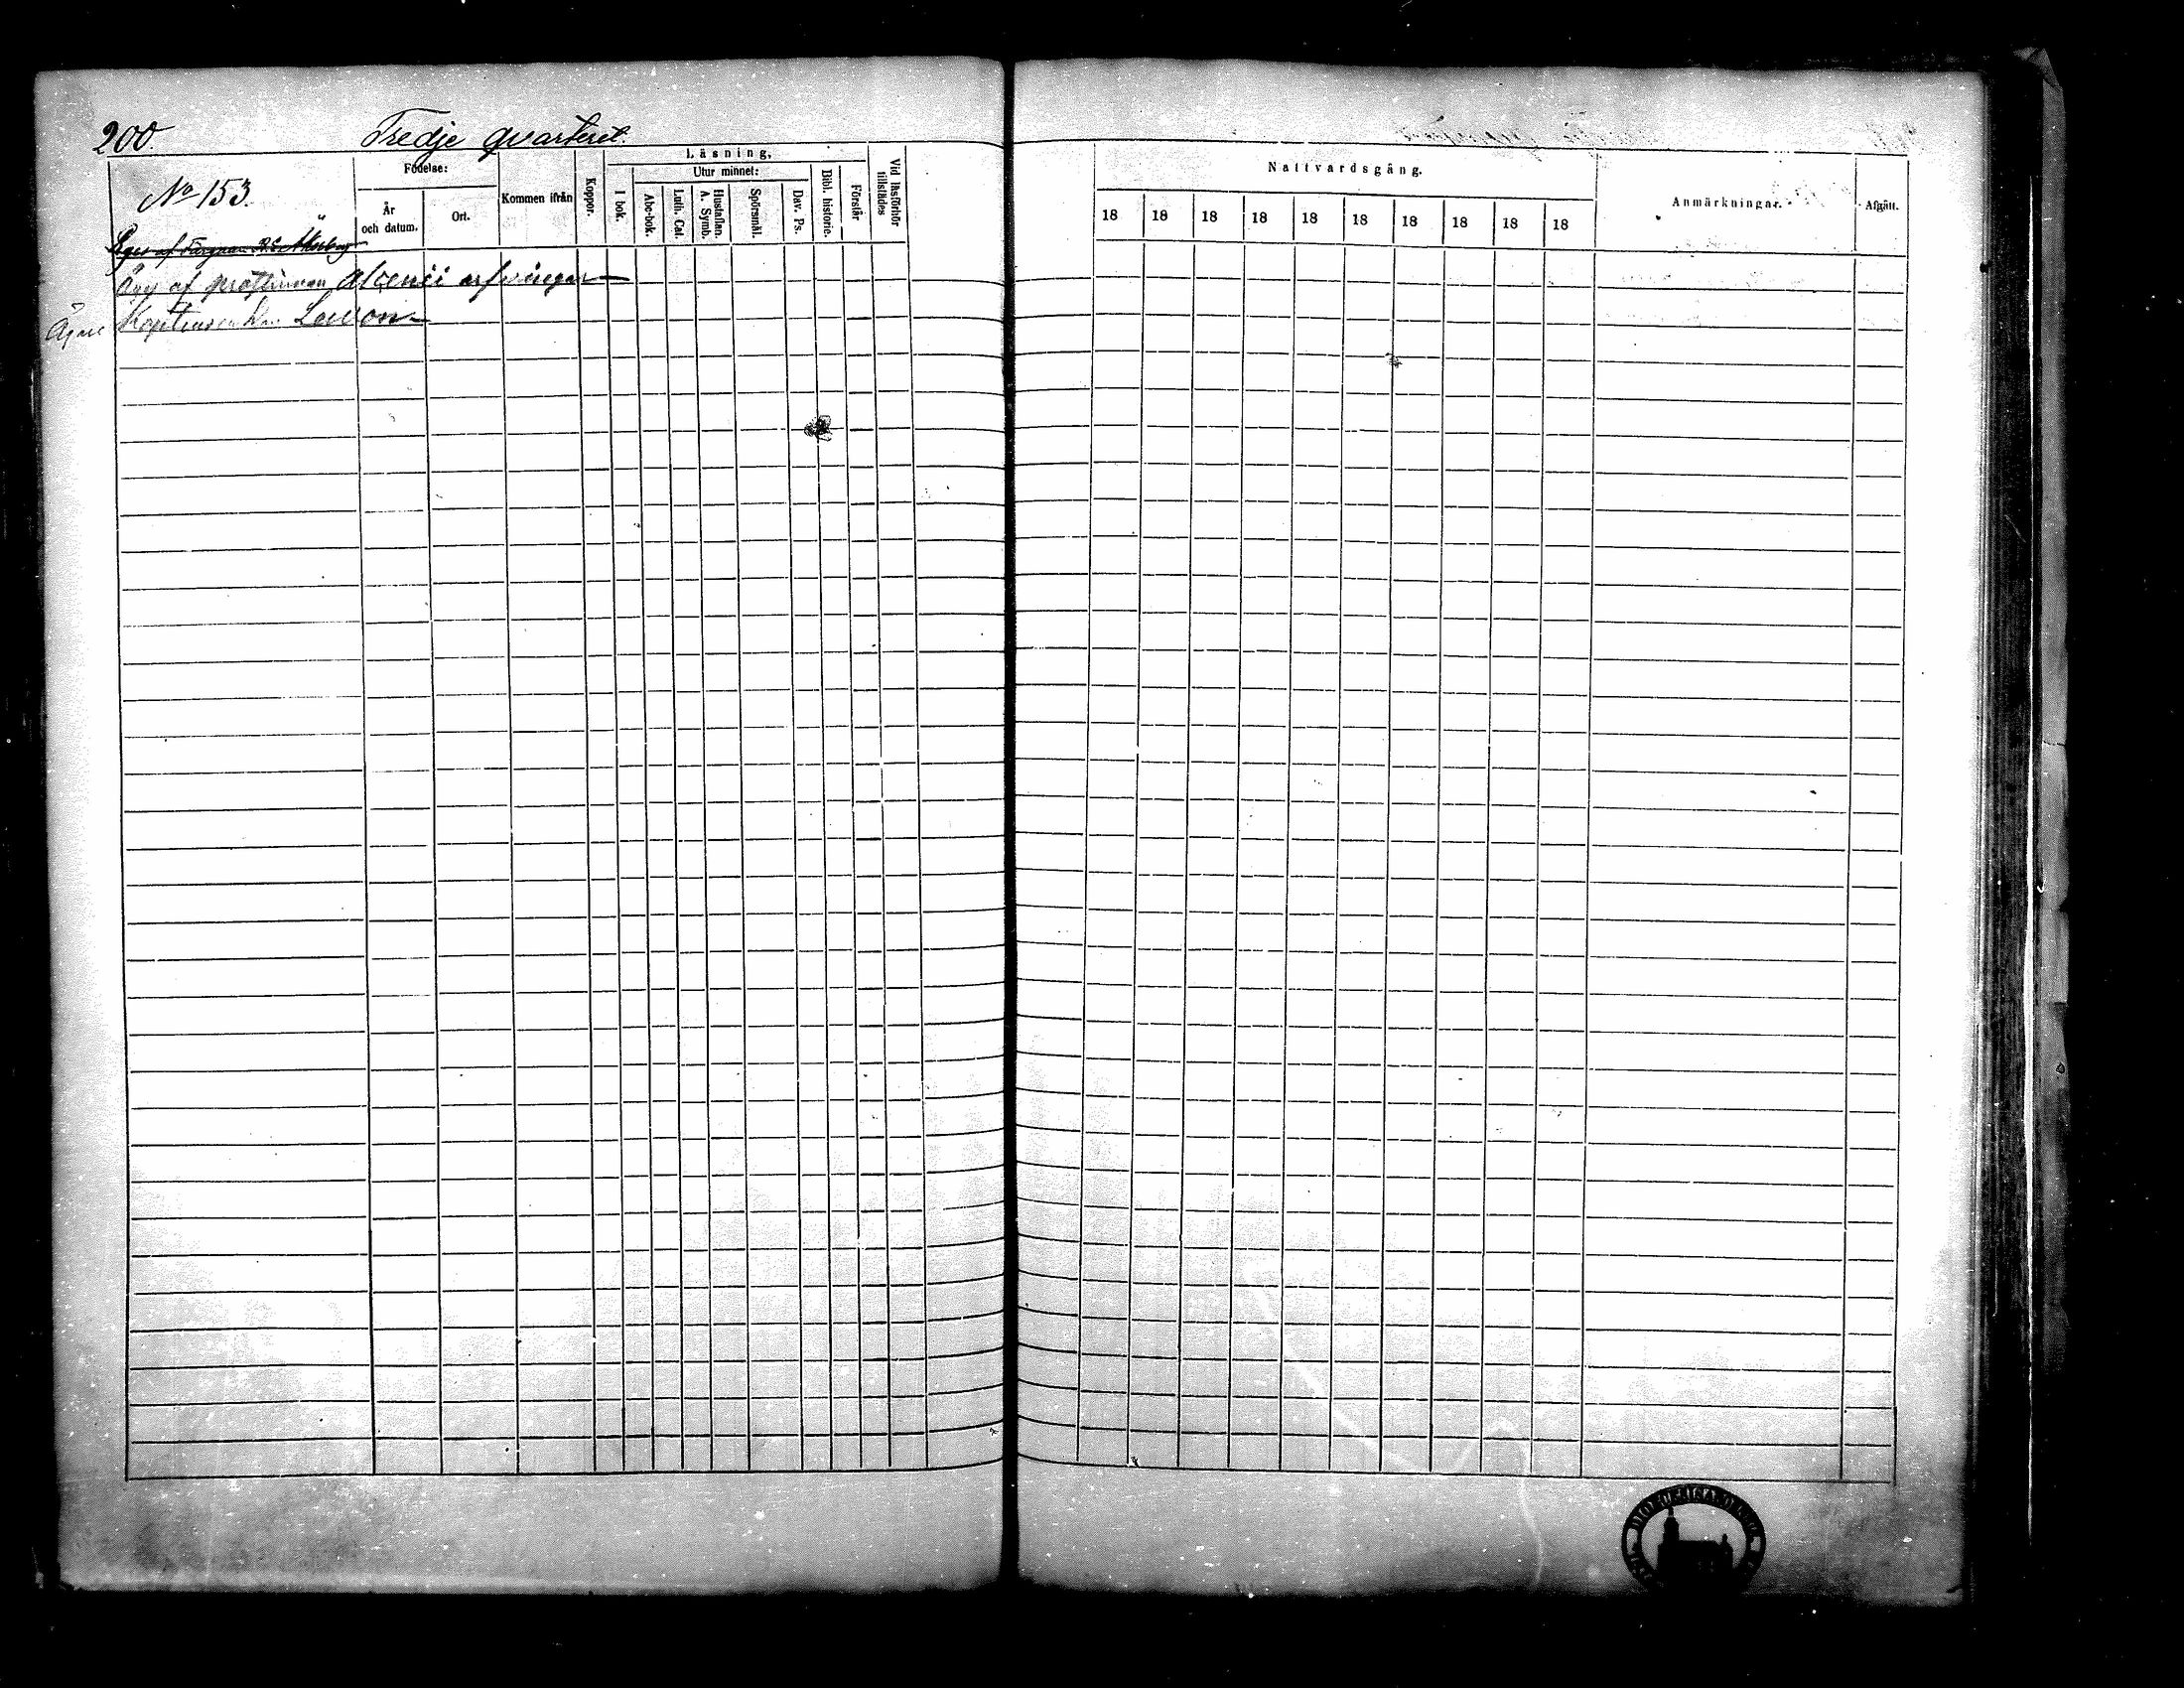 200
Tredje qvarteret.
No 153.
Födelse:
År och datum.
Ort.
Kommen ifrån
Koppor.
Läsning.
I bok.
Utur minnet:
Abc-bok.
Luth. Cat.
Hustaflan. A. Symb.
Spörsmål.
Dav. Ps.
Bibl. historie.
Förstår
Vid läsförhör tillstädes
Nattvardsgång.
18 18 18 18 18 18 18 18 18 18
Anmärkningar.
Afgått.
af Åkerberg
af prostinnan arfvingar